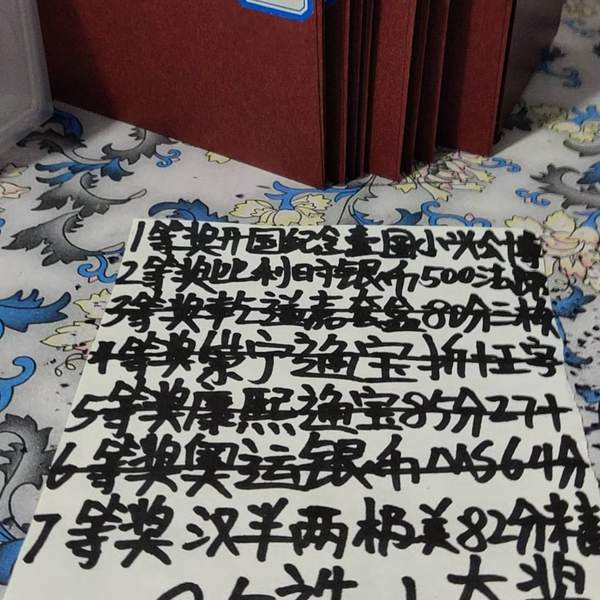 1等奖开国纪念壹圆小头公博
2等奖比利时银币500法郎
3等奖乾道嘉套盒80分三枚
4等奖崇宁通宝折十王字
5等奖康熙通宝85分27+
6等奖奥运银币AAS64分
7等奖汉半两极美82分精
大奖